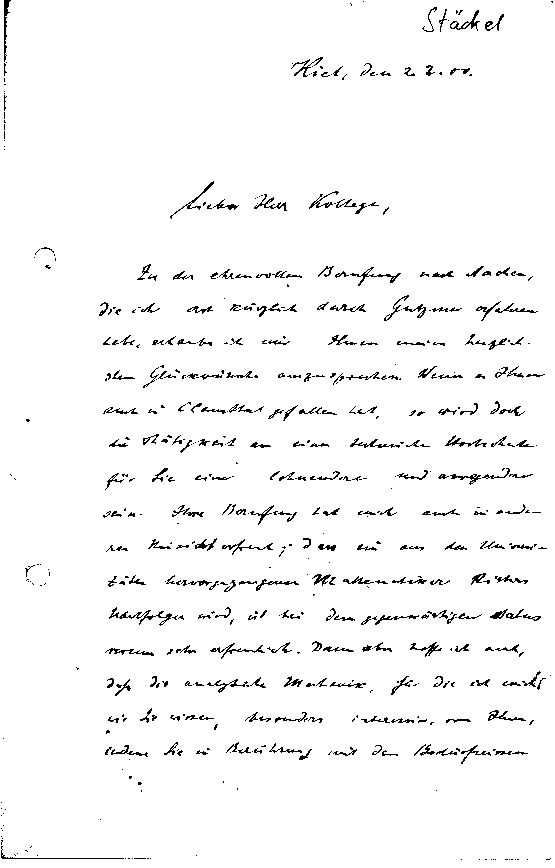 Stäckel
Kiel, den 2.2.00.
Lieber Herr Kollege,
Zu der ehrenvollen Berufung nach Aachen,
die ich erst kürzlich durch Gutzmer erfahren
habe, erlaube ich mir Ihnen meine herzlich-
sten Glückwünsche auszusprechen. Wenn es Ihnen
auch in Clausthal gefallen hat, so wird doch
die Thätigkeit an einer technischen Hochschule
für Sie eine lohnendere und anregendere
sein. Ihre Berufung hat mich auch in ande-
rer Hinsicht erfreut; dass ein aus den Universi-
täten hervorgegangener Mathematiker Ritters
Nachfolger wird, ist bei dem gegenwärtigen Status
rerum sehr erfreulich. Dann aber hoffe ich auch,
daß die analytische Mechanik, für die ich mich,
wie Sie wissen, besonders interessire, von Ihnen,
indem Sie in Berührung mit den Bedürfnissen